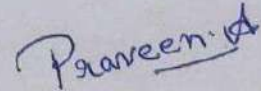 Praveen. A